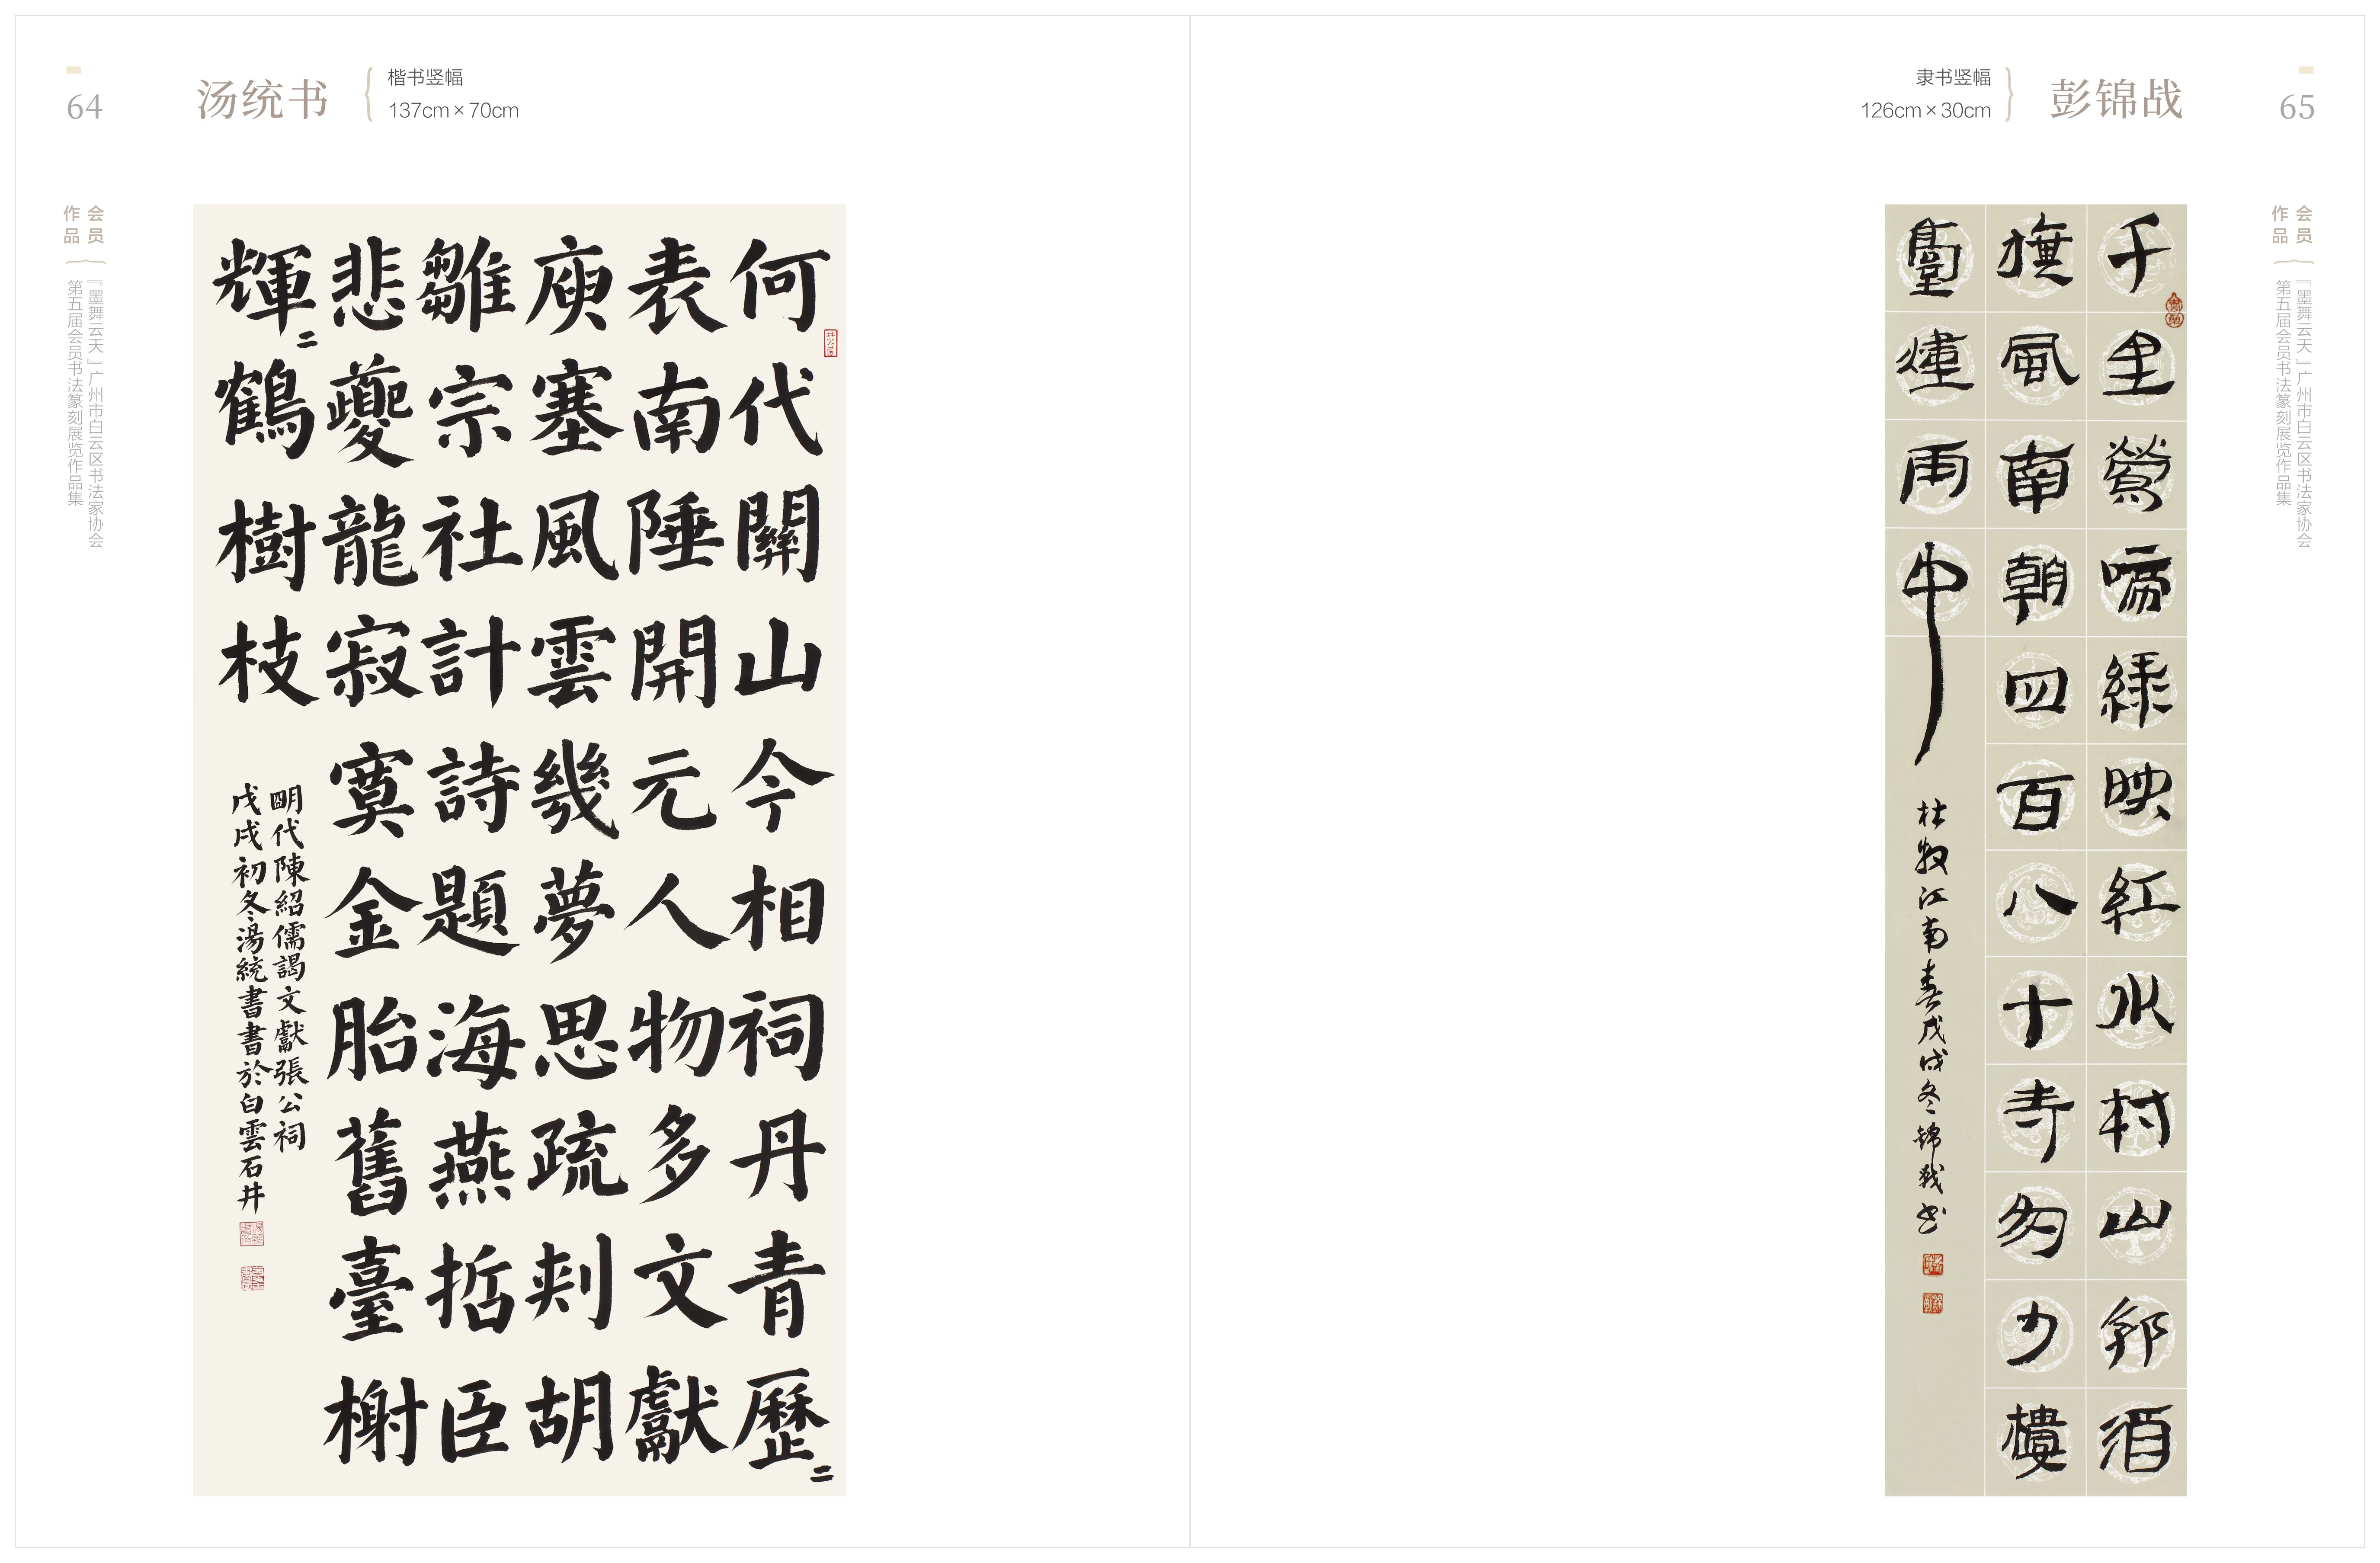 64
汤统书
楷书竖幅
137cm×70cm
会员
作品
『墨舞云天』广州市白云区书法家协会
第五届会员书法篆刻展览作品集
何代關山今相祠丹青歷二
表南陲開元人物多文獻
庾塞風雲幾夢思疏剡胡
雛宗社計詩題海燕哲臣
悲夔龍寂寞金胎舊臺榭
輝二鶴樹枝
明代陳紹儒謁文獻張公祠
戊戌初冬湯統書書於白雲石井
65
彭锦战
隶书竖幅
126cm×30cm
会员
作品
『墨舞云天』广州市白云区书法家协会
第五届会员书法篆刻展览作品集
千里鶯啼綠映紅水村山郭酒
旗風南朝四百八十寺多少樓
臺煙雨中
杜牧江南春戊戌冬锦戰书